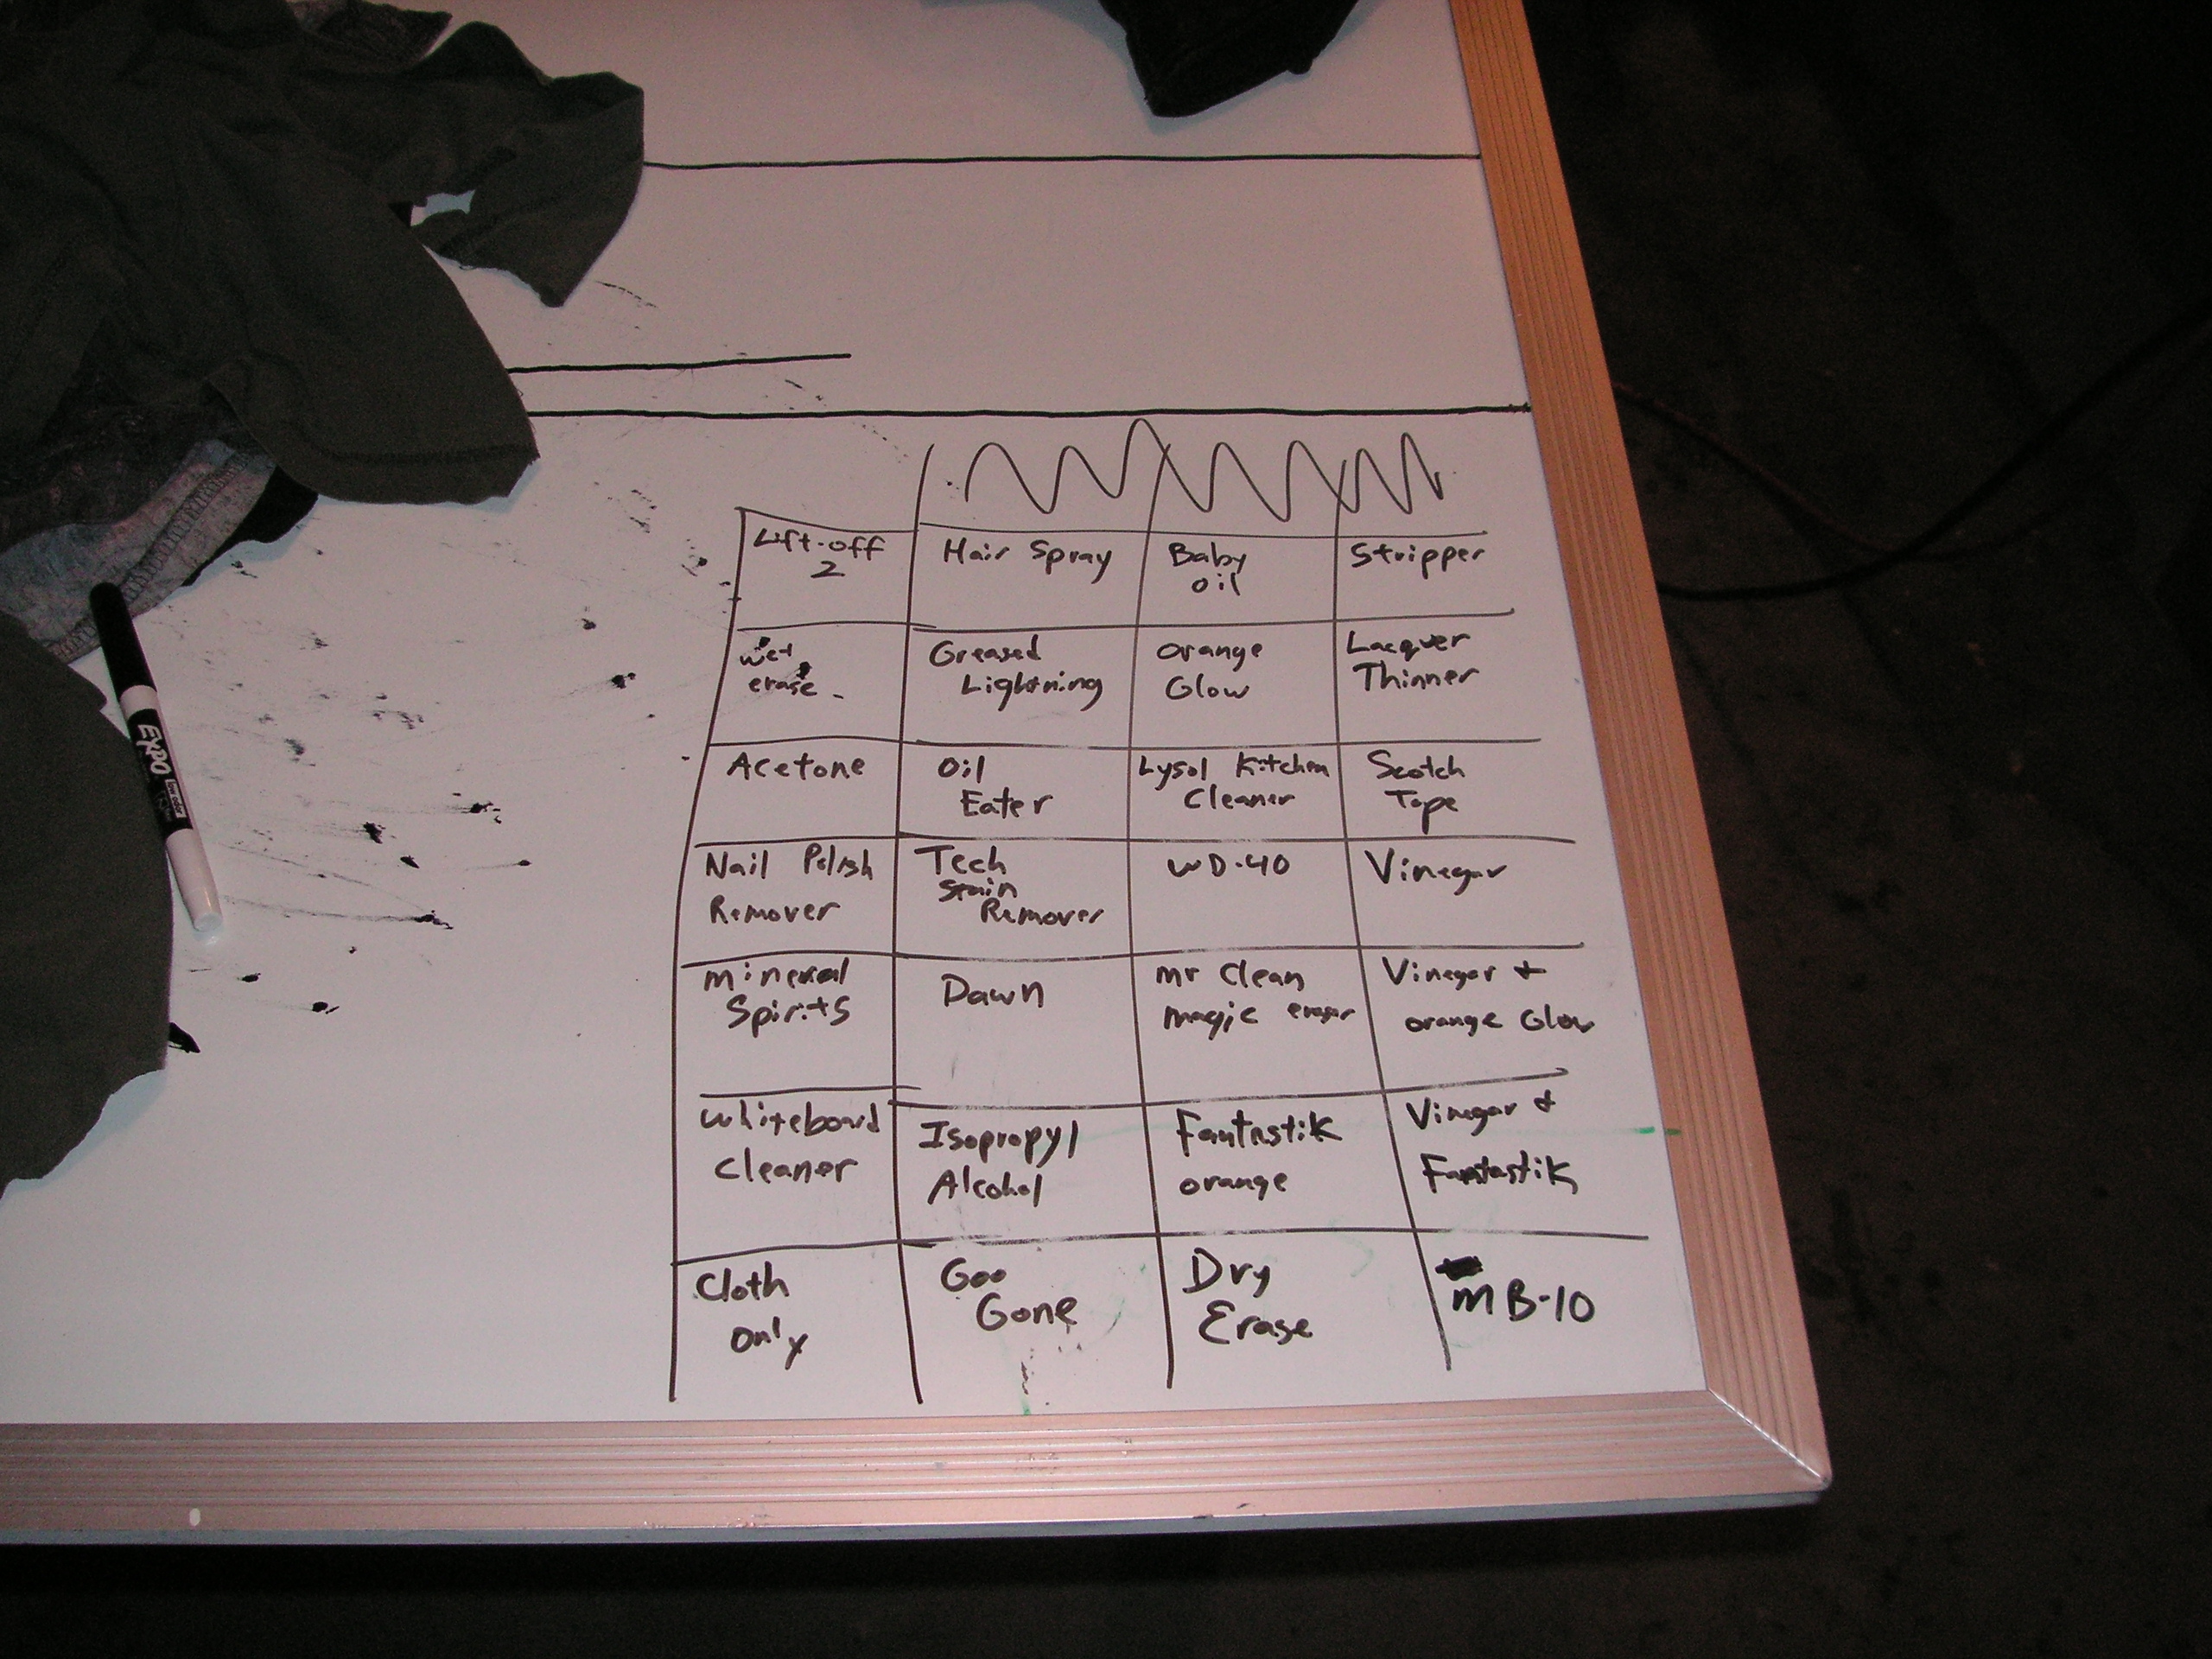 Lift-off
2
Hair Spray
Baby
Oil
Stripper
Wet
erase
Greased
Lightning
Orange
Glow
Lacquer
Thinner
Acetone
Oil
Eater
Lysol Kitchen
Cleaner
Scotch
Tape
Nail Polish
Remover
Tech
Stain
Remover
WD-40
Vinegar
Mineral
Spirits
Dawn
Mr Clean
Magic eraser
Vinegar +
Orange Glow
Whiteboard
Cleaner
Isopropyl
Alcohol
Fantastik
Orange
Vinegar +
Fantastik
Cloth
Only
Goo
Gone
Dry
Erase
MB-10
EXPO
low odor